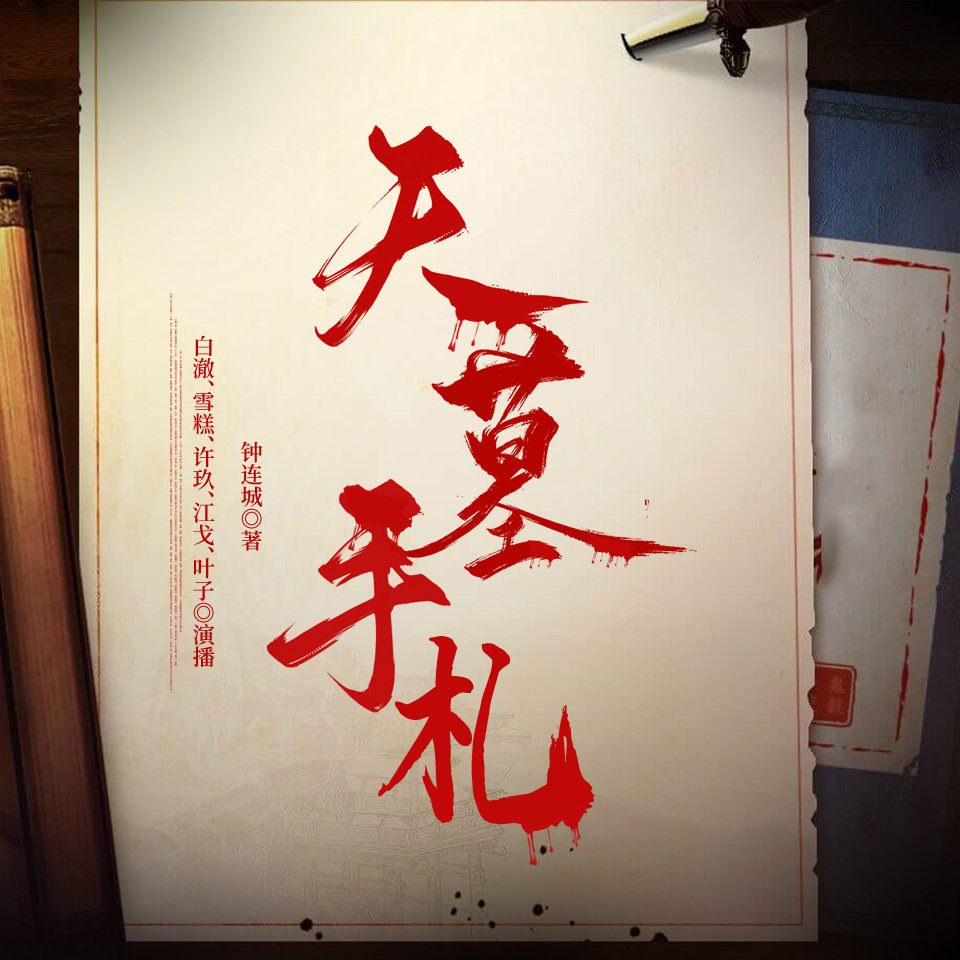 天墓手札
钟连城◎著
白澈、雪糕、许玖、江戈、叶子◎演播